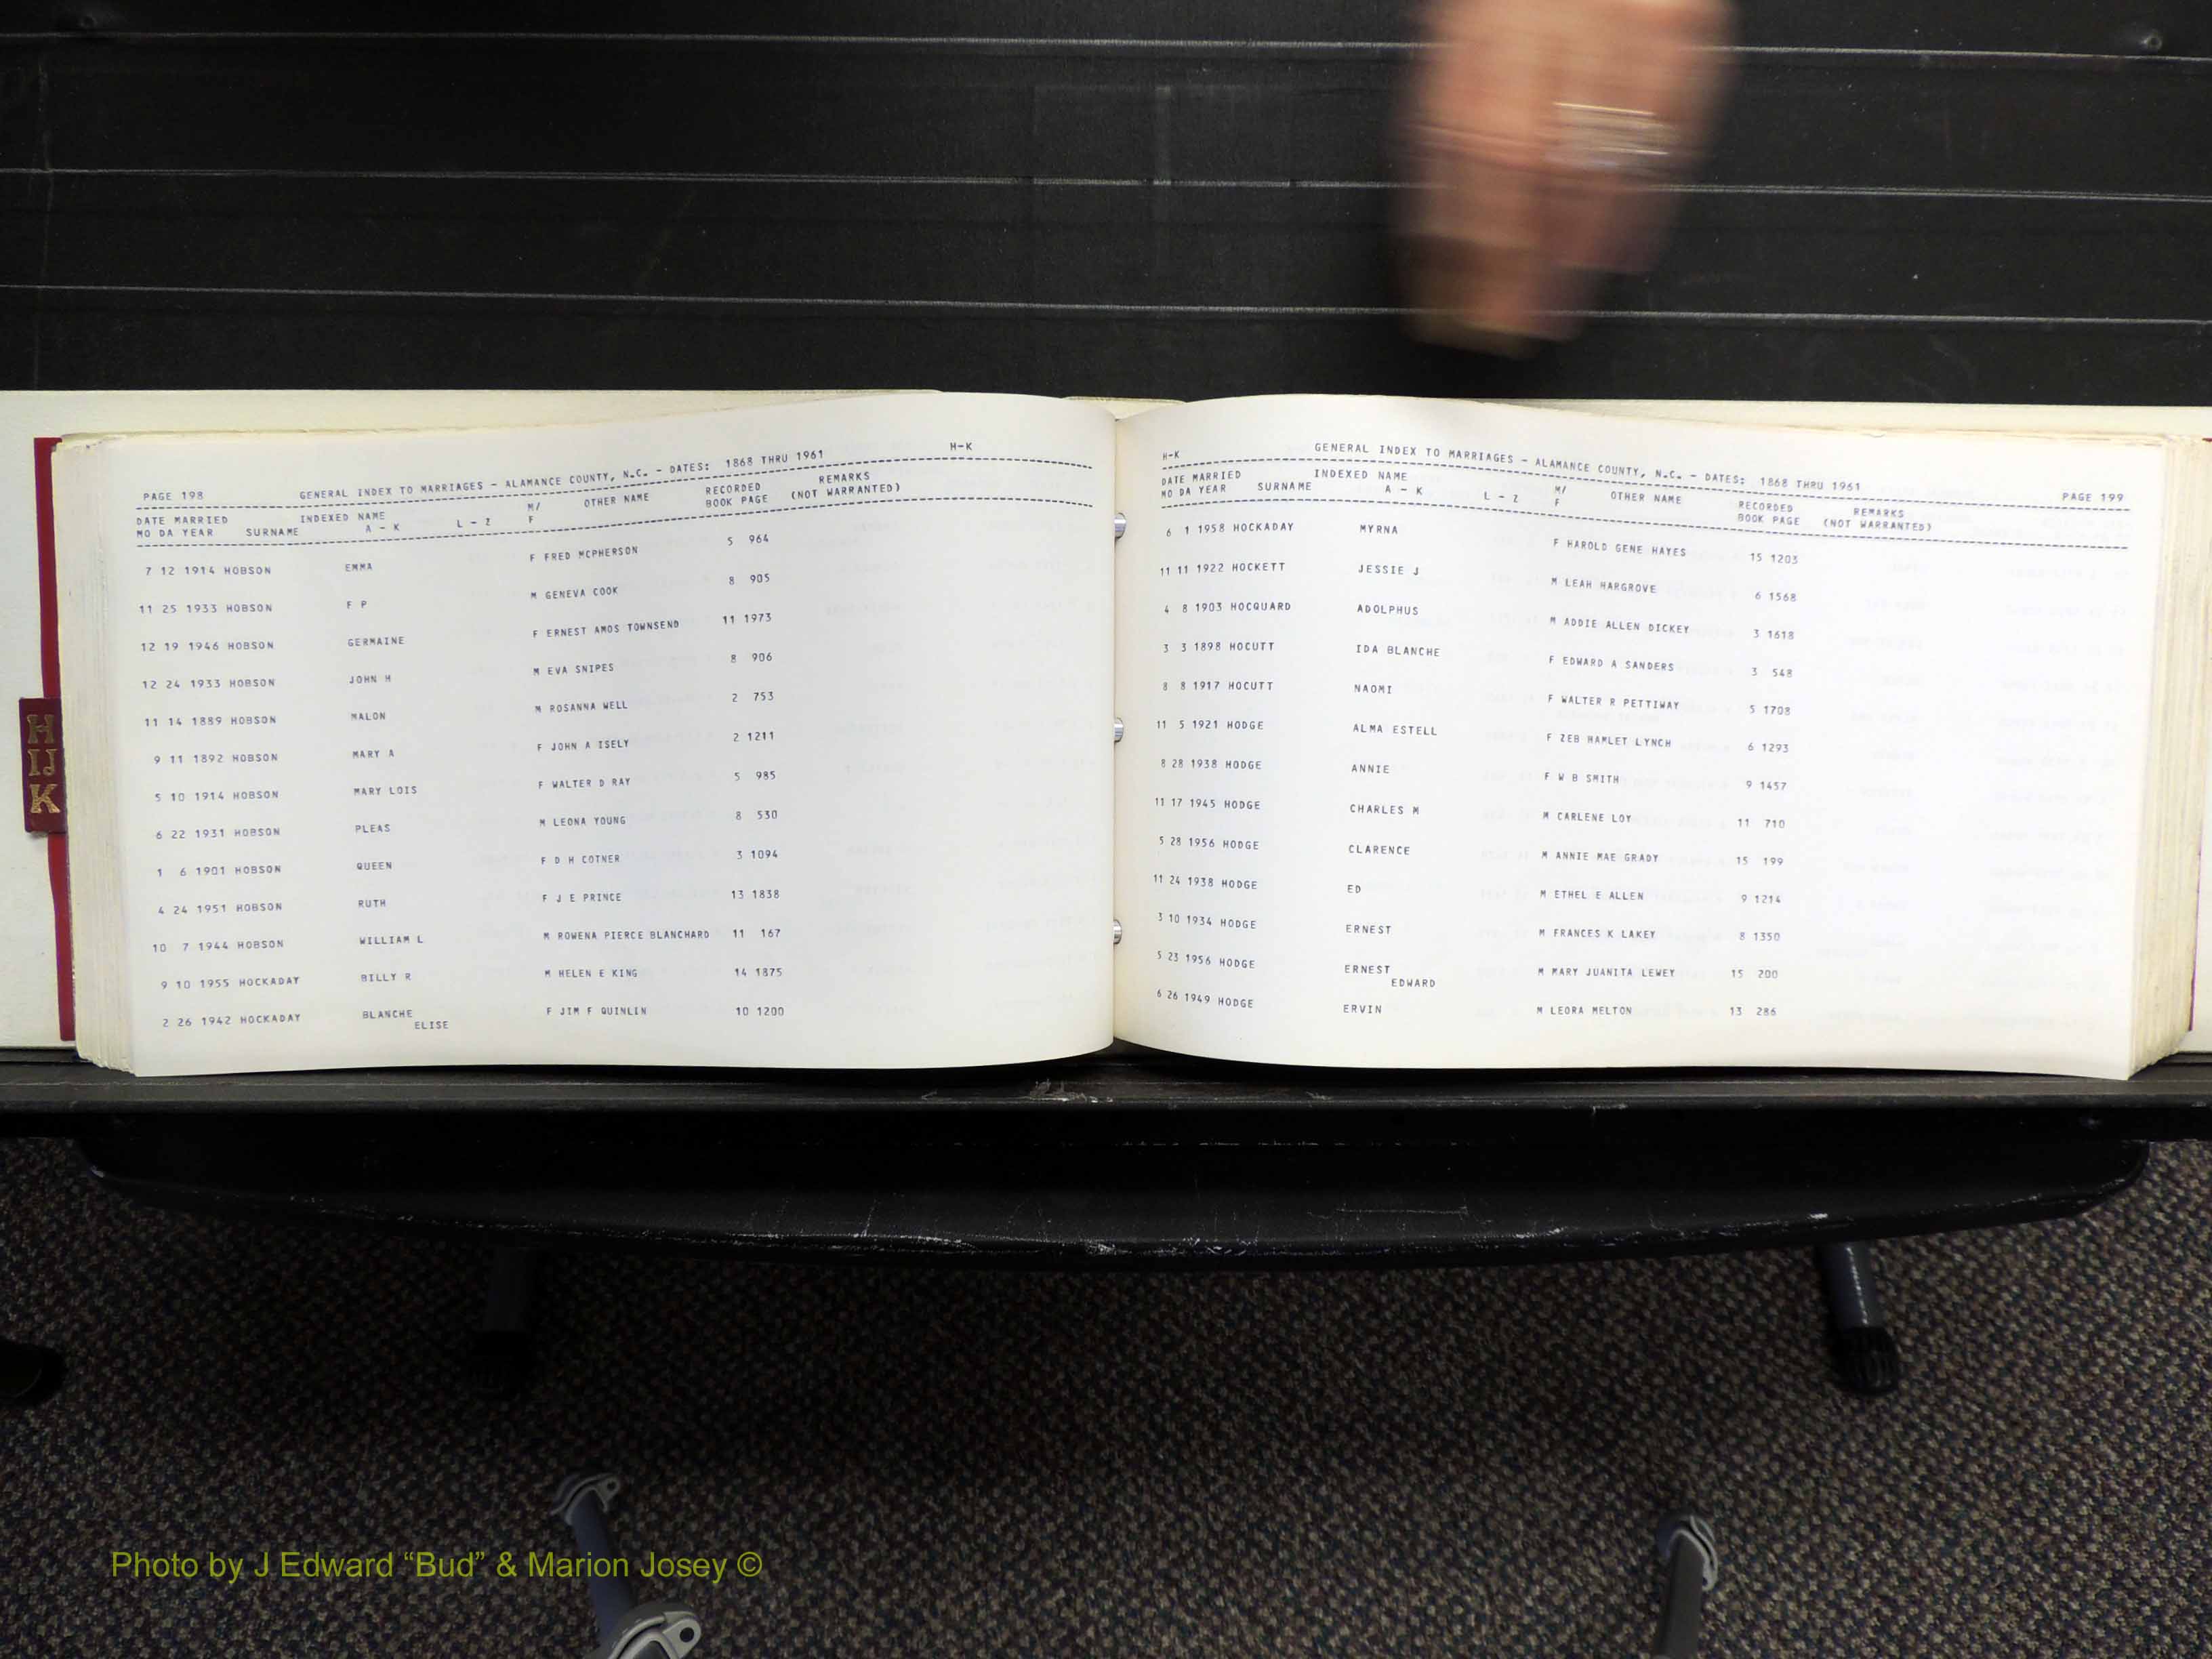 H
IJ
K
H-K
PAGE 198 GENERAL INDEX TO MARRIAGES - ALAMANCE COUNTY, N.C. - DATES: 1868 THRU 1961
DATE MARRIED INDEXED NAME M/ OTHER NAME RECORDED REMARKS
MO DA YEAR SURNAME A - K L - Z F BOOK PAGE (NOT WARRANTED)
7 12 1914 HOBSON EMMA F FRED MCPHERSON 5 964
11 25 1933 HOBSON F P M GENEVA COOK 8 905
12 19 1946 HOBSON GERMAINE F ERNEST AMOS TOWNSEND 11 1973
12 24 1933 HOBSON JOHN H M EVA SNIPES 8 906
11 14 1889 HOBSON MALON M ROSANNA WELL 2 753
9 11 1892 HOBSON MARY A F JOHN A ISELY 2 1211
5 10 1914 HOBSON MARY LOIS F WALTER D RAY 5 985
6 22 1931 HOBSON PLEAS M LEONA YOUNG 8 530
1 6 1901 HOBSON QUEEN F D H COTNER 3 1094
4 24 1951 HOBSON RUTH F J E PRINCE 13 1838
10 7 1944 HOBSON WILLIAM L M ROWENA PIERCE BLANCHARD 11 167
9 10 1955 HOCKADAY BILLY R M HELEN E KING 14 1875
2 26 1942 HOCKADAY BLANCHE F JIM F QUINLIN 10 1200
ELISE
H-K GENERAL INDEX TO MARRIAGES - ALAMANCE COUNTY, N.C. - DATES: 1868 THRU 1961 PAGE 199
DATE MARRIED INDEXED NAME M/ OTHER NAME RECORDED REMARKS
MO DA YEAR SURNAME A - K L - Z F BOOK PAGE (NOT WARRANTED)
6 1 1958 HOCKADAY MYRNA F HAROLD GENE HAYES 15 1203
11 11 1922 HOCKETT JESSIE J M LEAH HARGROVE 6 1568
4 8 1903 HOCQUARD ADOLPHUS M ADDIE ALLEN DICKEY 3 1618
3 3 1898 HOCUTT IDA BLANCHE F EDWARD A SANDERS 3 548
8 8 1917 HOCUTT NAOMI F WALTER R PETTIWAY 5 1708
11 5 1921 HODGE ALMA ESTELL F ZEB HAMLET LYNCH 6 1293
8 28 1938 HODGE ANNIE F W B SMITH 9 1457
11 17 1945 HODGE CHARLES M M CARLENE LOY 11 710
5 28 1956 HODGE CLARENCE M ANNIE MAE GRADY 15 199
11 24 1938 HODGE ED M ETHEL E ALLEN 9 1214
3 10 1934 HODGE ERNEST M FRANCES K LAKEY 8 1350
5 23 1956 HODGE ERNEST M MARY JUANITA LEWEY 15 200
EDWARD
6 26 1949 HODGE ERVIN M LEORA MELTON 13 286
Photo by J Edward “Bud” & Marion Josey ©